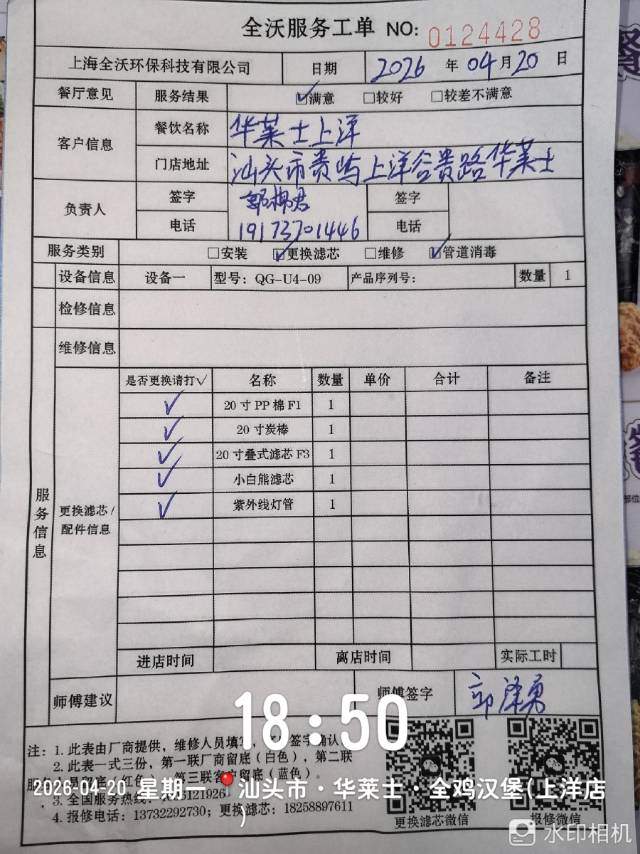 全沃服务工单 NO: 0124428
上海全沃环保科技有限公司 日期 2026 年 04 月 20 日
餐厅意见 服务结果 ☑满意 □较好 □较差不满意
客户信息 餐饮名称 华莱士上洋
门店地址 汕头市贵屿上洋谷贵路华莱士
负责人 签字 郭柳君 签字
电话 19173701446 电话
服务类别 □安装 ☑更换滤芯 □维修 ☑管道消毒
设备信息 设备一 型号: QG-U4-09 产品序列号: 数量 1
检修信息
维修信息
服务信息
更换滤芯/配件信息
是否更换请打√ 名称 数量 单价 合计 备注
√ 20寸PP棉F1 1
√ 20寸炭棒 1
√ 20寸叠式滤芯F3 1
√ 小白熊滤芯 1
√ 紫外线灯管 1
进店时间 离店时间 实际工时
师傅建议 师傅签字 郭泽勇
18:50
注: 1. 此表由厂商提供, 维修人员填写, 签字确认
2. 此表一式三份, 第一联厂商留底(白色), 第二联
留底(红色), 第三联客户留底(蓝色)。
3. 全国服务热线: 121926
4. 报修电话: 13732292730; 更换滤芯: 18258897611
更换滤芯微信 报修微信
2026-04-20 星期一 汕头市·华莱士·全鸡汉堡(上洋店)
水印相机